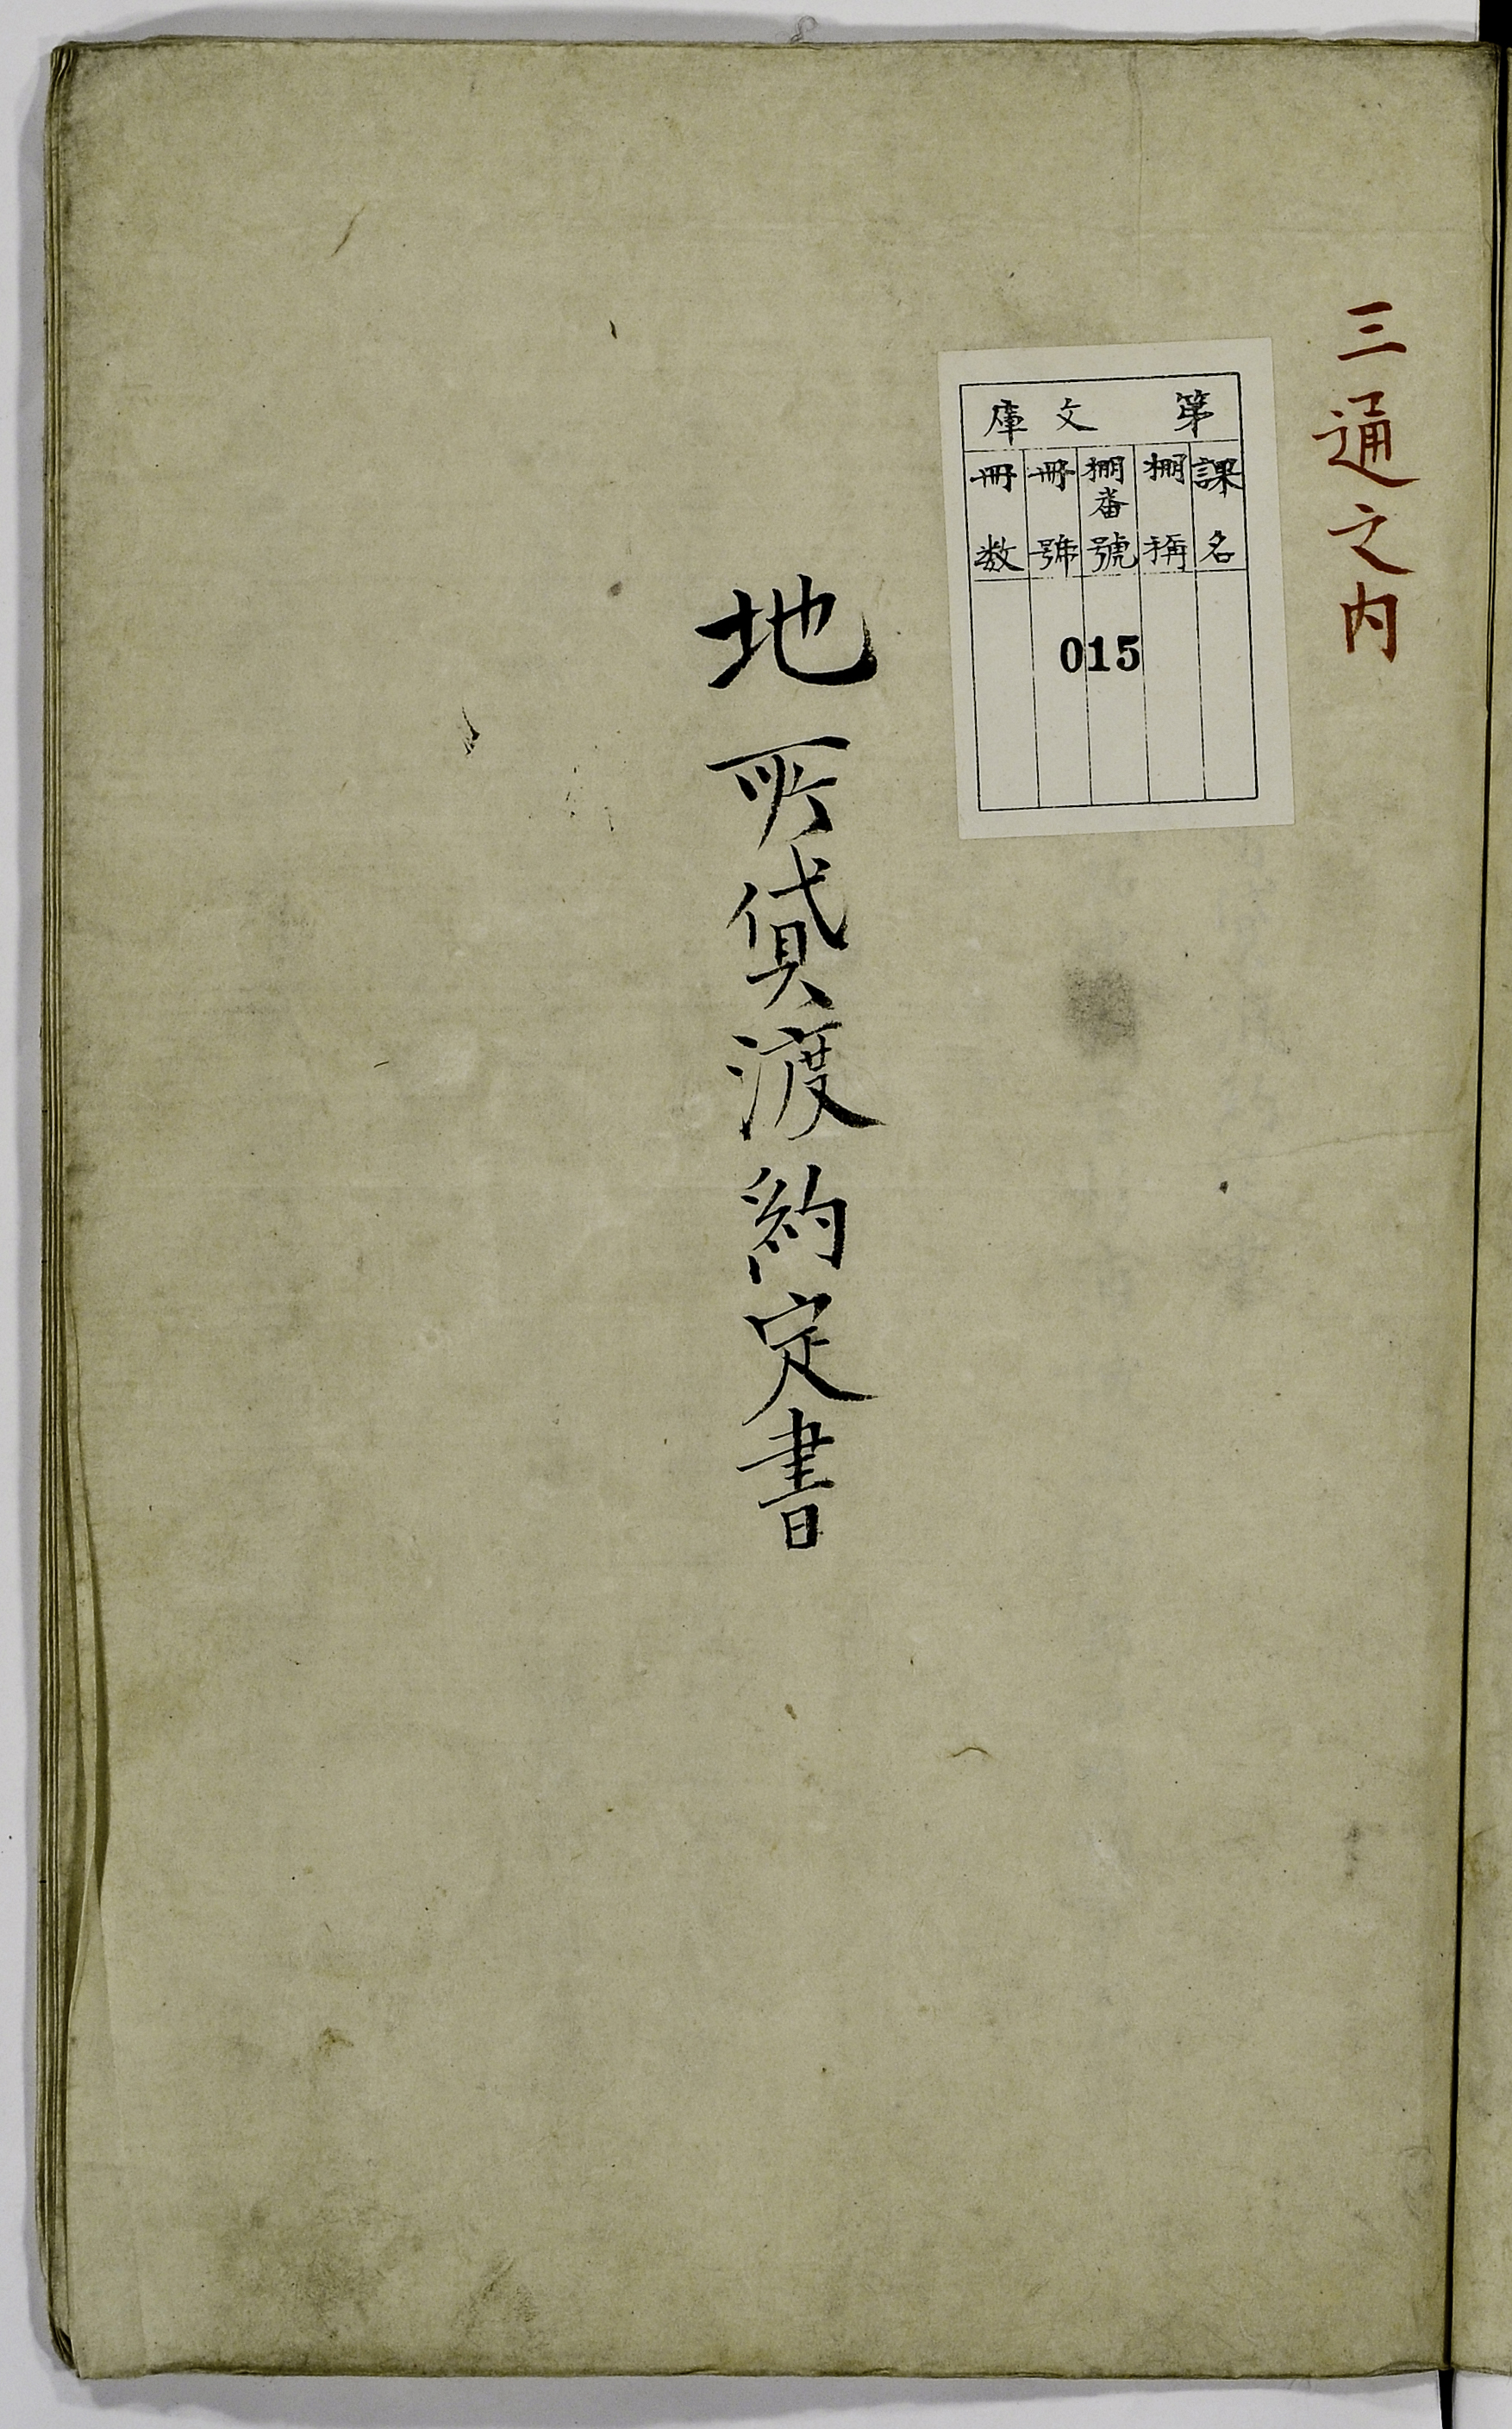 三通之内
第 文庫
課名
棚稱
棚番號
冊號
冊数
015
地所貸渡約定書